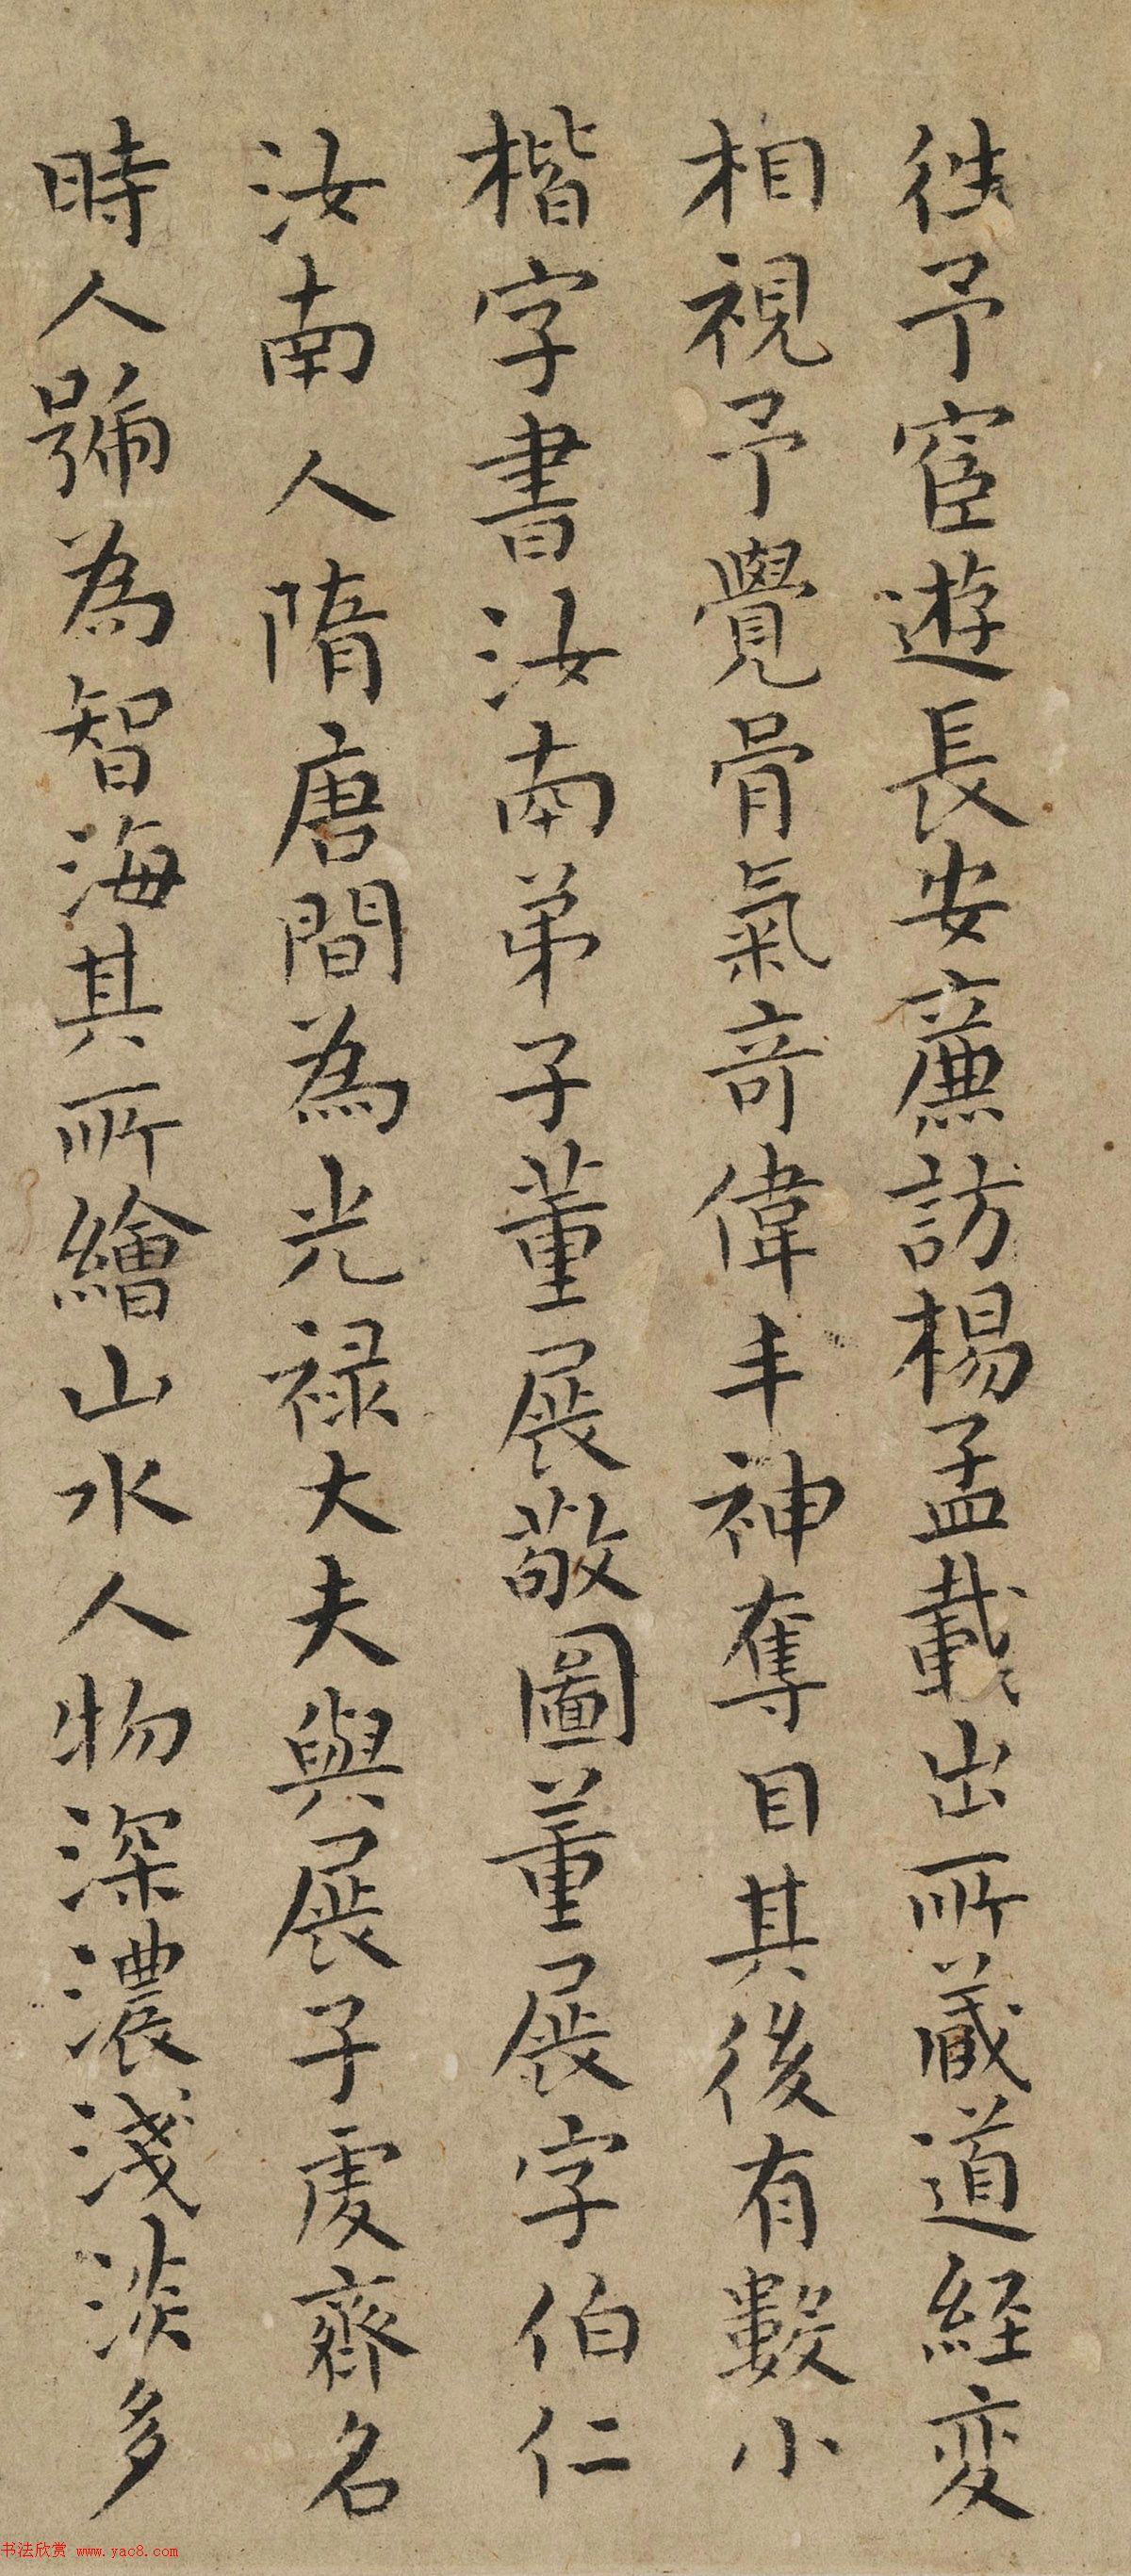 徃予宦遊長安廉訪楊孟載出所蔵道経变
相視予覺骨氣竒偉丰神奪目其後有數小
楷字書汝南弟子董展敬圖董展字伯仁
汝南人隋唐間為光禄大夫與展子虔齊名
時人號為智海其所繪山水人物深濃淺淡多
书法欣赏 www.yac8.com